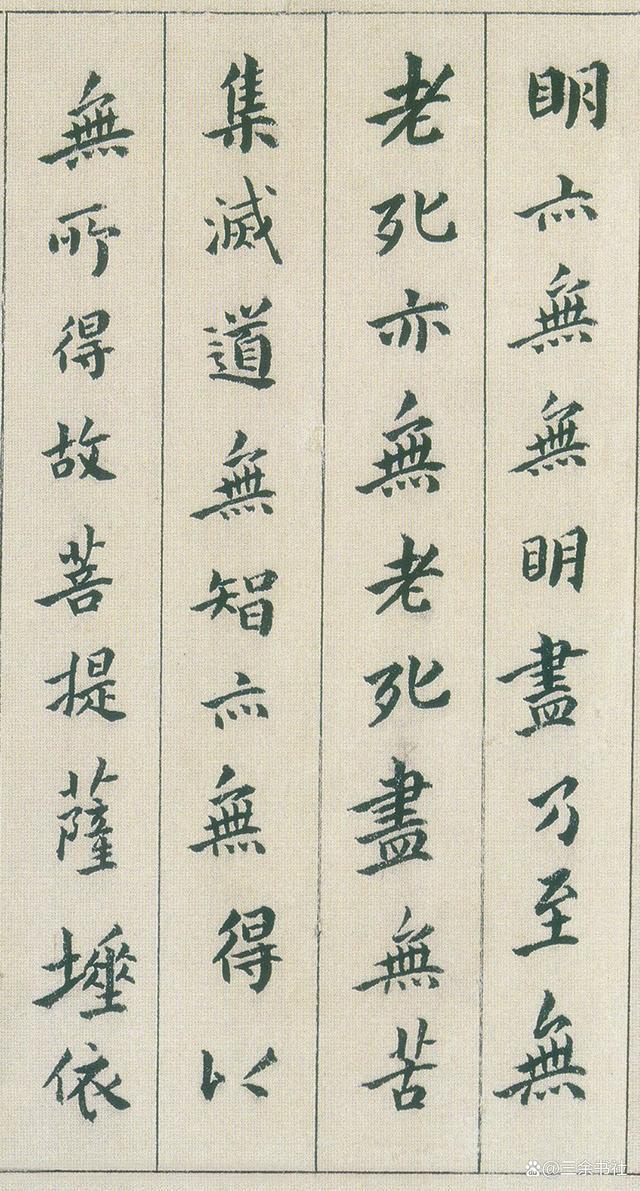 眀亦無無眀盡乃至無
老死亦無老死盡無苦
集滅道無智亦無得以
無所得故菩提薩埵依
@三余书社